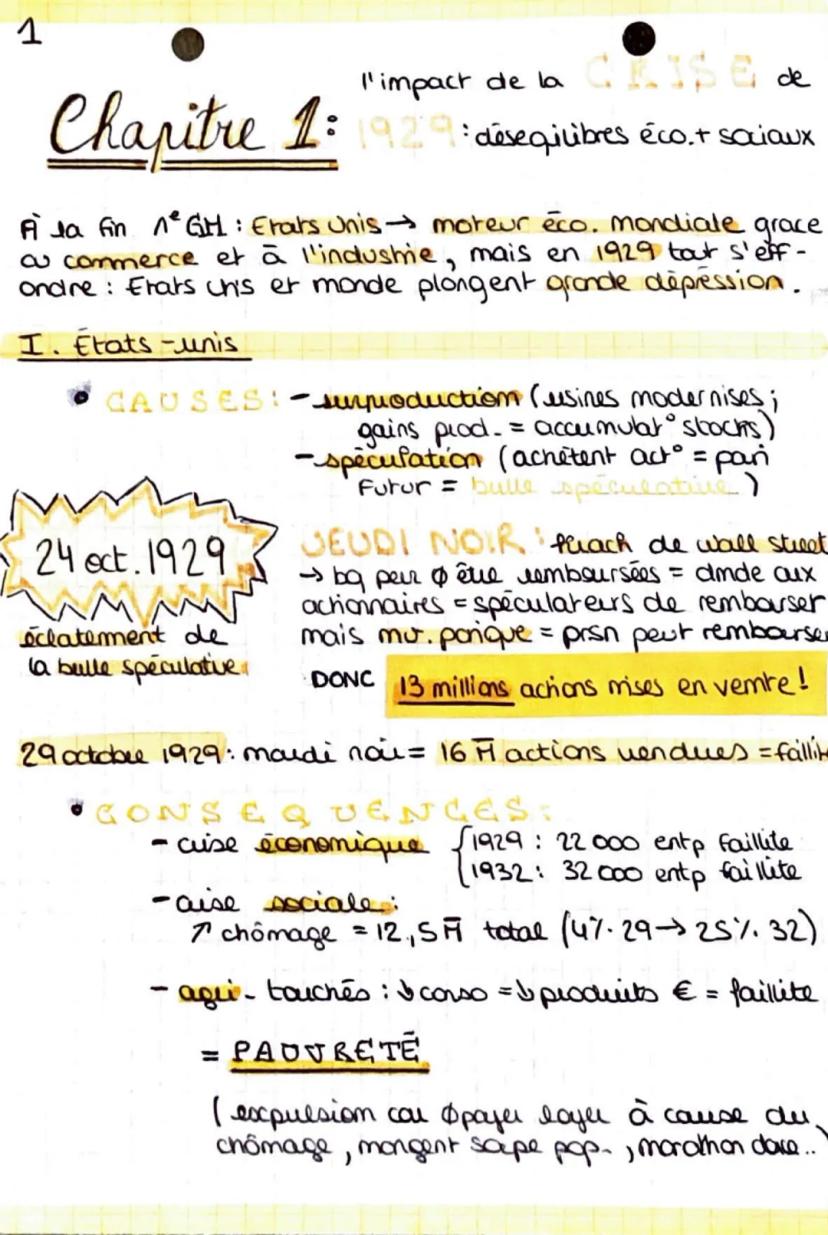 1
l'impact de la CRISE de
Chapitre 1: 1929: déseqilibres éco.+ sociaux
À la fin 1e GM : Etats Unis → moteur éco. mondiale grace
au commerce et à l'industrie, mais en 1929 tout s'eff-
ondre : Etats Unis et monde plongent grande dépression.
I. États-unis
• CAUSES: - surproduction (usines modernises;
gains prod. = accumulat° stocks)
- spéculation (achètent act° = pari
futur = bulle spéculative)
24 oct. 1929
éclatement de
la bulle spéculative
JEUDI NOIR: krach de wall street
→ bq peur ∅ être remboursées = dmde aux
actionnaires = spéculateurs de rembourser
mais mv. panique = prsn peut rembourser
DONC 13 millions actions mises en vente!
29 octobre 1929: mardi noir = 16 M actions vendues = faillite
• CONSEQUENCES:
- crise économique {1929 : 22 000 entp faillite
1932 : 32 000 entp faillite
- crise sociale:
↗ chômage = 12,5 M total (4% 29 → 25% 32)
- agri- touchés : ↓ conso = ↓ produits € = faillite
= PAUVRETÉ
(expulsion car ∅ payer loyer à cause du
chômage, mangent soupe pop-, marathon danse..